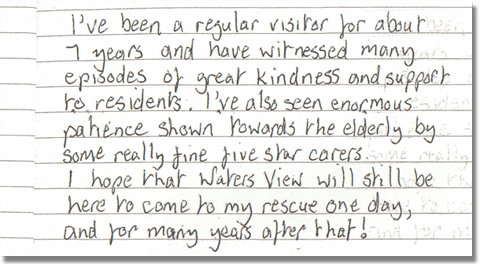 I've been a regular visitor for about
7 years and have witnessed many
episodes of great kindness and support
to residents. I've also seen enormous
patience shown towards the elderly by
some really fine five star carers.
I hope that Waters View will still be
here to come to my rescue one day,
and for many years after that!